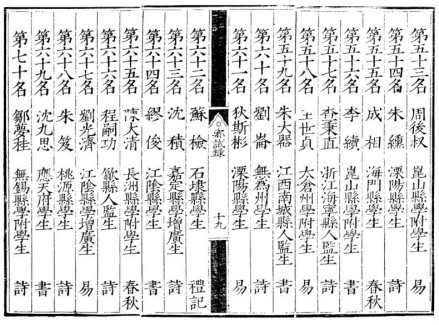 第五十三名 周後叔 崑山縣學附學生 易
第五十四名 朱纁 溧陽縣學附學生 書
第五十五名 成相 海門縣學附學生 春秋
第五十六名 李續 崑山縣學附學生 書
第五十七名 查秉直 浙江海寧縣人監生 詩
第五十八名 王世貞 太倉州學附學生 易
第五十九名 朱大器 江西南城縣人監生 詩
第六十名 劉崙 無為州學生 詩
第六十一名 狄斯彬 溧陽縣學附學生 易
鄉試錄 十九
第六十二名 蘇檢 石埭縣學附學生 禮記
第六十三名 沈積 嘉定縣學增廣生 詩
第六十四名 繆俊 江陰縣學附學生 書
第六十五名 陳大清 長洲縣學附學生 春秋
第六十六名 程嗣功 歙縣人監生 詩
第六十七名 劉光濟 江陰縣學增廣生 易
第六十八名 朱笈 桃源縣學生 詩
第六十九名 沈九思 應天府學生 書
第七十名 鄒夢桂 無錫縣學附學生 詩